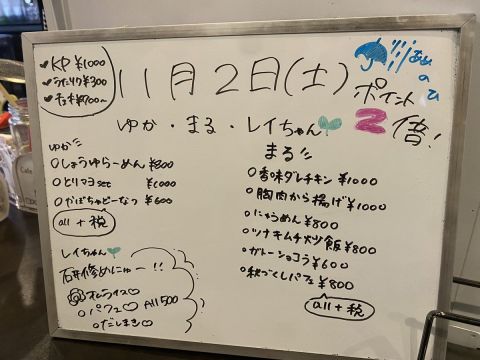 ♥KP ¥1000
♥うたリク¥300
♥チェキ¥700〜
11月2日(土)
あめ
の
ひ
ポイント
2倍!
ゆか・まる・レイちゃん🌱
ゆか
○しょうゆらーめん ¥800
○とりマヨset ¥1000
○かぼちゃどーなつ ¥600
all + 税
まる
○香味ダレチキン ¥1000
○胸肉から揚げ¥1000
○にゅうめん ¥800
○ツナキムチ炒飯¥800
○ガトーショコラ¥600
○秋づくしパフェ¥800
all + 税
レイちゃん🌱
めにゅー!!
オムライス♡
○パフェ♡ All 500
○だしまき♡